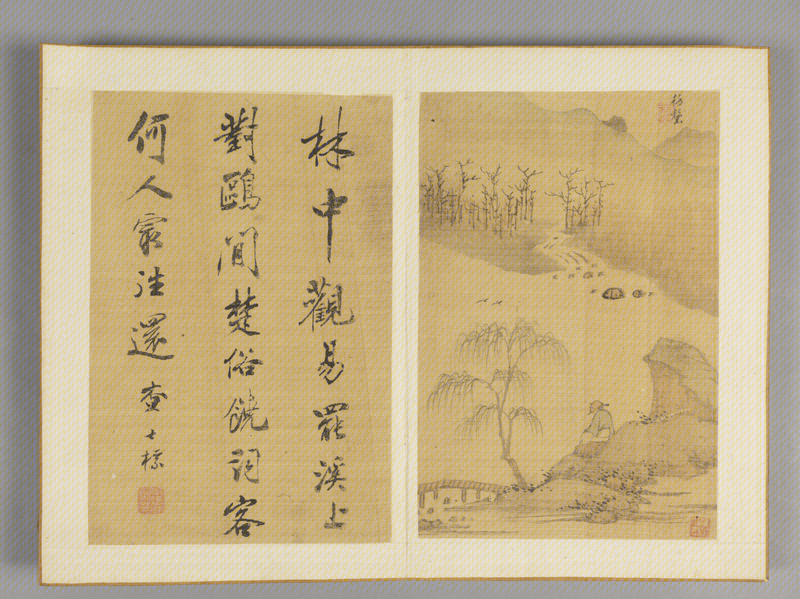 梅壑
林中觀易罷溪上
對鷗閒楚俗饒詞客
何人最往還 查士標